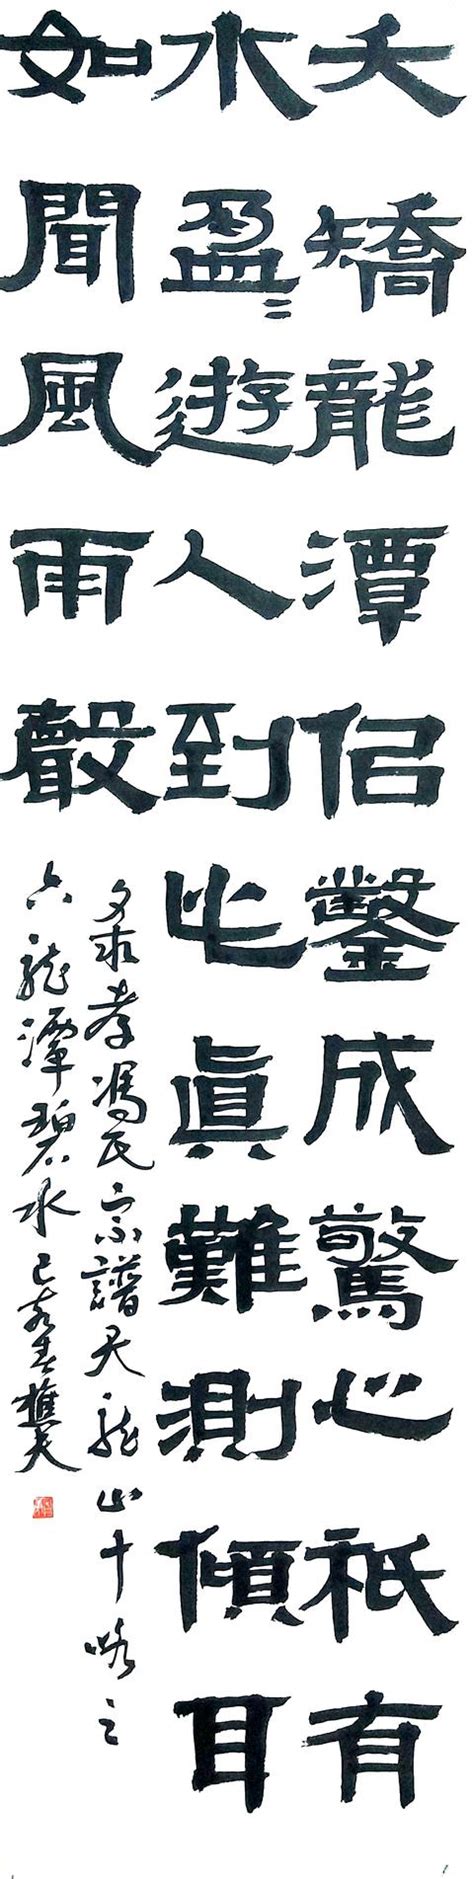 夭矯龍潭佀鑿成驚心祇有
水盈〻遊人到此眞難測傾耳
如聞風雨聲
孝馮氏宗譜天龍山十咏之
六龍潭碧水 己亥春樵夫